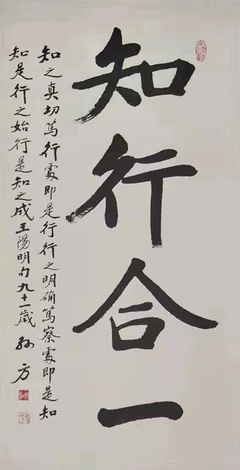 知行合一
知之真切篤行處即是行行之明确篤察處即是知
知是行之始行是知之成王陽明句九十一歲孙方